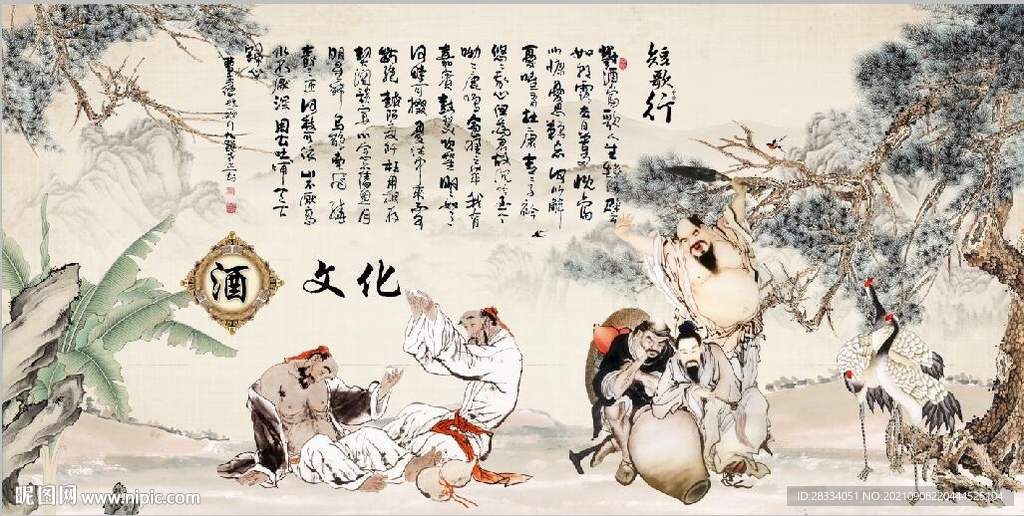 短歌行
對酒當歌人生幾何譬
如朝露去日苦多慨當
以慷憂思難忘何以解
憂唯有杜康青青子衿
悠悠我心但為君故沉吟至今
呦呦鹿鳴食野之苹我有
嘉賓鼓瑟吹笙明明如月
何時可掇憂從中來不可
斷絕越陌度阡枉用相存
契闊談讌心念舊恩月
明星稀烏鵲南飛繞
樹三匝何枝可依山不厭高
水不厭深周公吐哺天下
歸心
酒
文化
昵图网 www.nipic.com
ID:28334051 NO:20210908220444525104